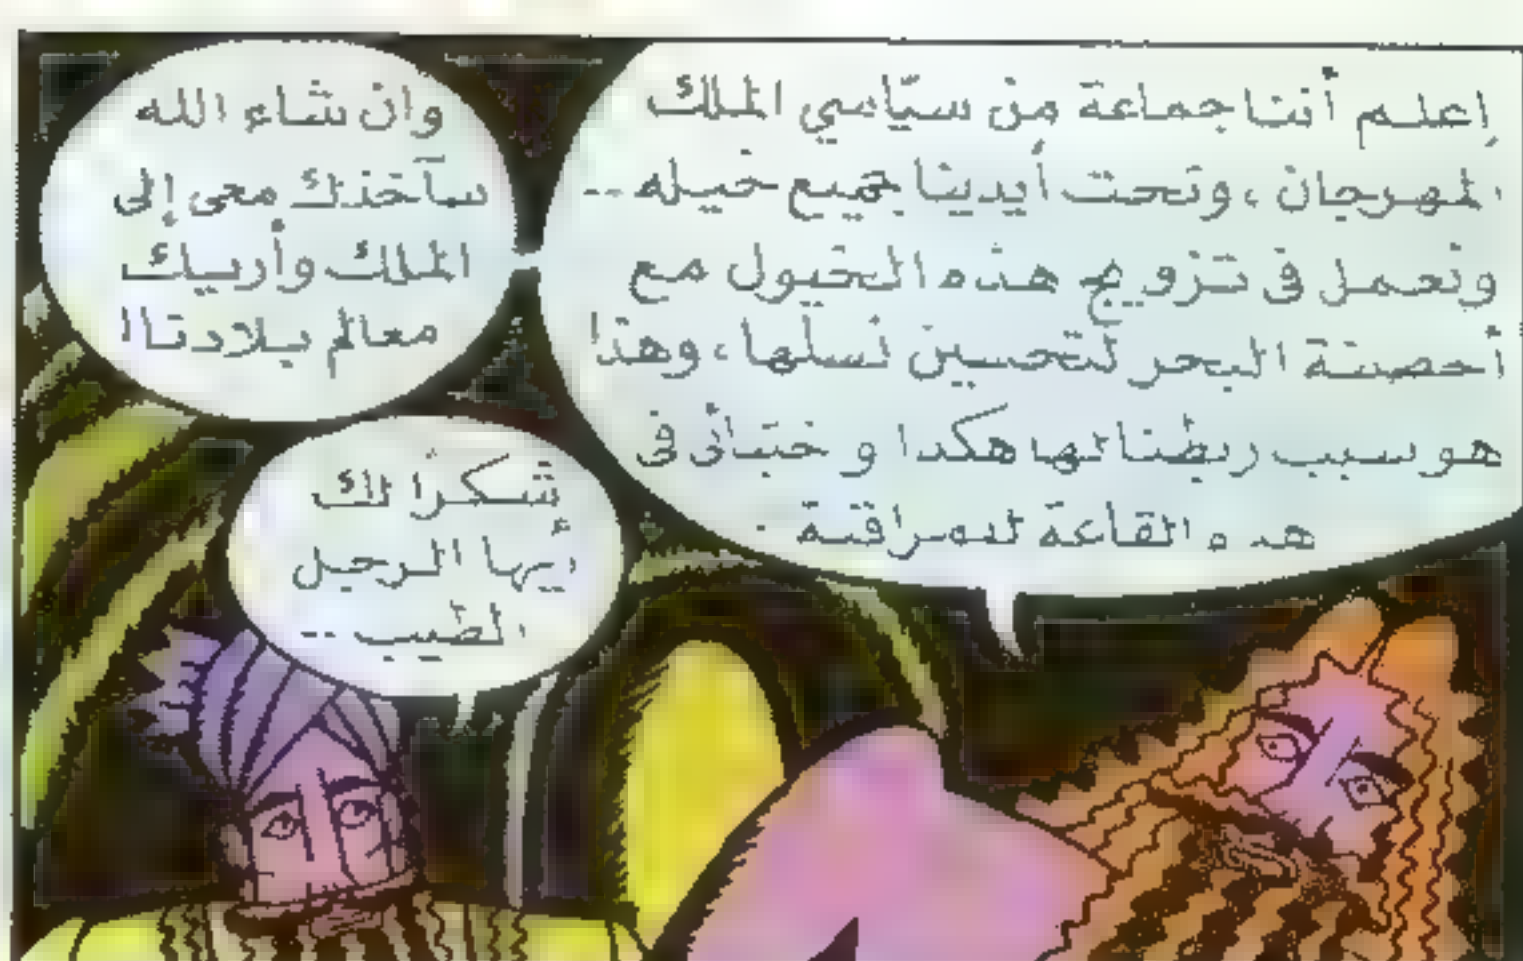 إعلم أننا جماعة من سيّاسي الملك
المهرجان ، وتحت أيدينا جميع خيله --
ونعمل في تزويج هذه الخيول مع
أحصنة البحر لتحسين نسلها ، وهذا
هو سبب ربطنا لها هكذا و ختبائى فى
هذه القاعة للمراقبة .
وان شاء الله
سآخذك معى إلى
الملك وأريك
معالم بلادنا !
شكراً لك
أيها الرجل
الطيب --